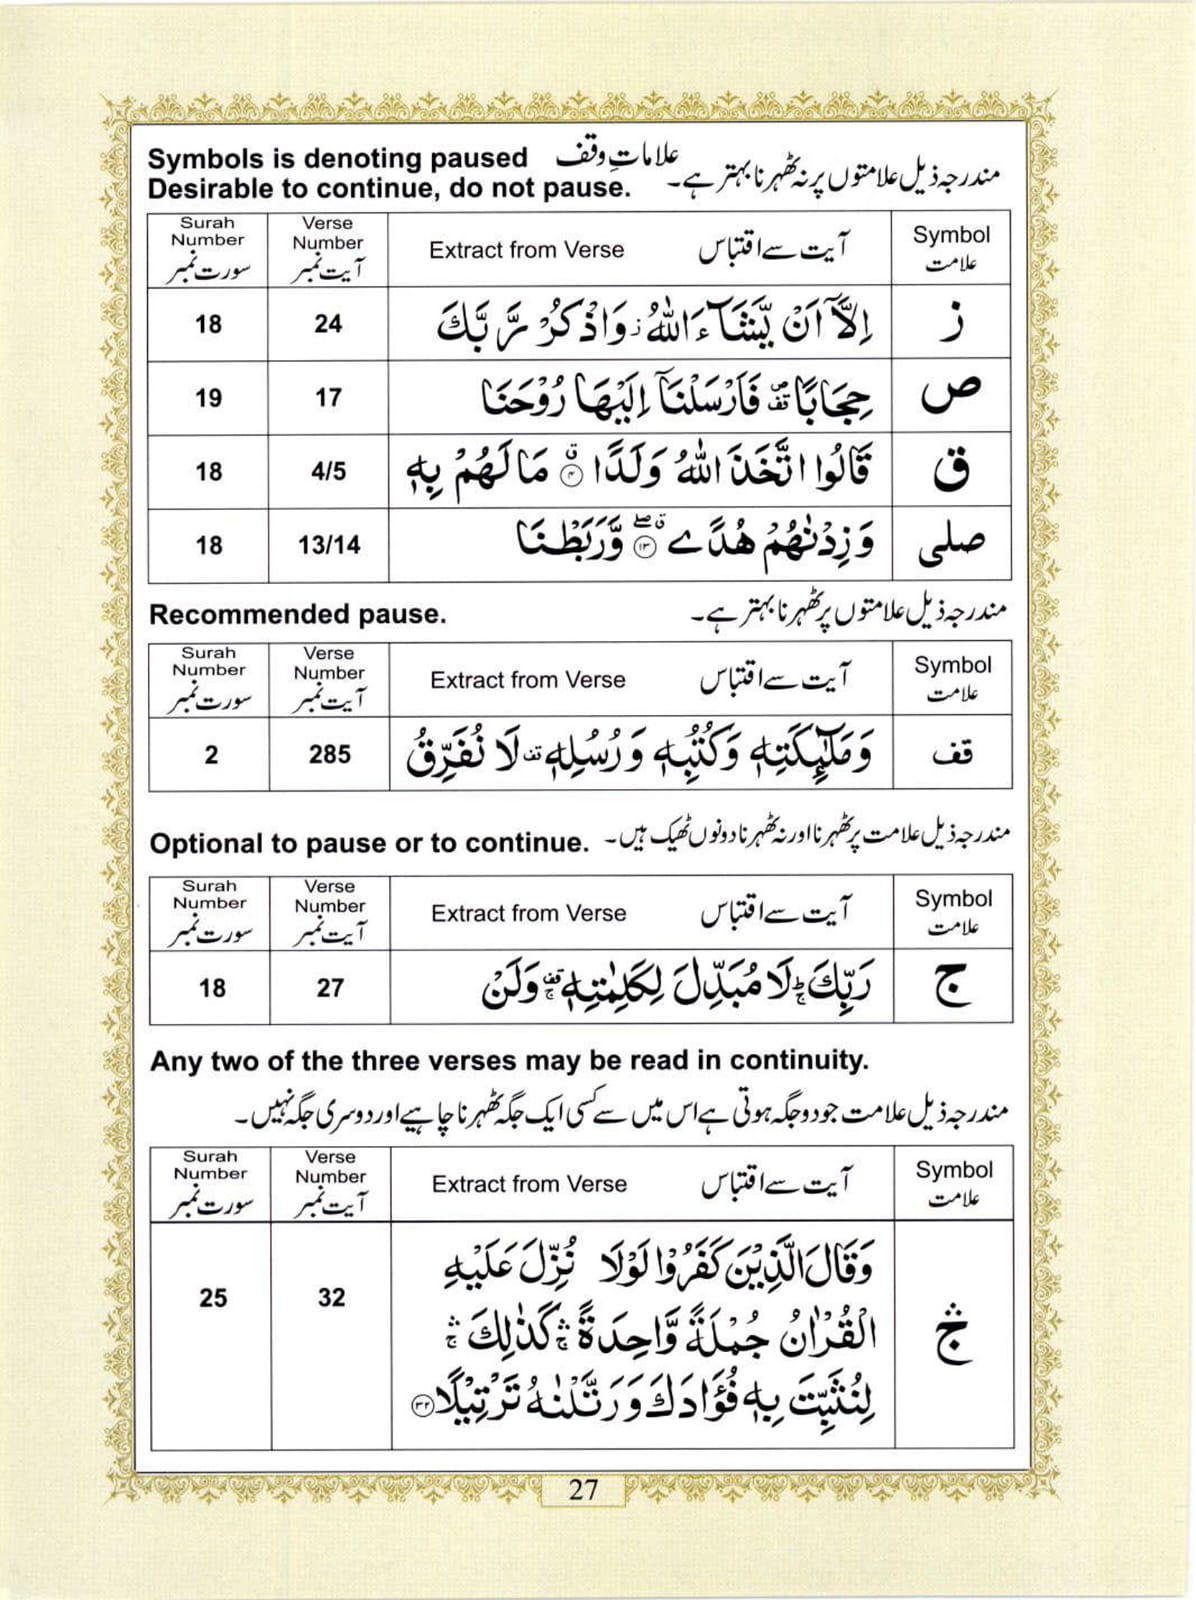 Symbols is denoting paused علاماتِ وقف
Desirable to continue, do not pause. مندرجہ ذیل علامتوں پر نہ ٹھہرنا بہتر ہے۔
Surah Number سورت نمبر | Verse Number آیت نمبر | Extract from Verse آیت سے اقتباس | Symbol علامت
18 | 24 | اِلَّاۤ اَنْ يَّشَآءَ اللّٰهُ ؗ وَاذْكُرْ رَّبَّكَ | ز
19 | 17 | حِجَابًا ۪ۛقف فَاَرْسَلْنَاۤ اِلَيْهَا رُوْحَنَا | ص
18 | 4/5 | قَالُوا اتَّخَذَ اللّٰهُ وَلَدًا ۴ ق مَا لَهُمْ بِهٖ | ق
18 | 13/14 | وَزِدْنٰهُمْ هُدًے ۱۳ ق صلے وَّرَبَطْنَا | صلی
Recommended pause. مندرجہ ذیل علامتوں پر ٹھہرنا بہتر ہے۔
Surah Number سورت نمبر | Verse Number آیت نمبر | Extract from Verse آیت سے اقتباس | Symbol علامت
2 | 285 | وَمَلٰٓئِكَتِهٖ وَكُتُبِهٖ وَرُسُلِهٖ قف لَا نُفَرِّقُ | قف
Optional to pause or to continue. مندرجہ ذیل علامت پر ٹھہرنا اور نہ ٹھہرنا دونوں ٹھیک ہیں۔
Surah Number سورت نمبر | Verse Number آیت نمبر | Extract from Verse آیت سے اقتباس | Symbol علامت
18 | 27 | رَبِّكَ ؕۚ لَا مُبَدِّلَ لِكَلِمٰتِهٖ ۚقف وَلَنْ | ج
Any two of the three verses may be read in continuity.
مندرجہ ذیل علامت جو دو جگہ ہوتی ہے اس میں سے کسی ایک جگہ ٹھہرنا چاہیے اور دوسری جگہ نہیں۔
Surah Number سورت نمبر | Verse Number آیت نمبر | Extract from Verse آیت سے اقتباس | Symbol علامت
25 | 32 | وَقَالَ الَّذِيْنَ كَفَرُوْا لَوْلَا نُزِّلَ عَلَيْهِ
الْقُرْاٰنُ جُمْلَةً وَّاحِدَةً ۚۛ كَذٰلِكَ ۚۛ | جۛ
لِنُثَبِّتَ بِهٖ فُؤَادَكَ وَرَتَّلْنٰهُ تَرْتِيْلًا ۳۲
27